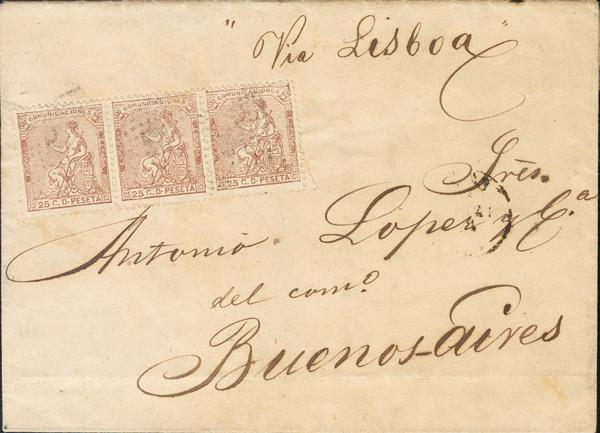 "Via Lisboa"
COMUNICACIONES
25 C. D. PESETA
COMUNICACIONES
25 C. D. PESETA
COMUNICACIONES
25 C. D. PESETA
Sres.
Antonio Lopez y Cª
del comº
Buenos-aires